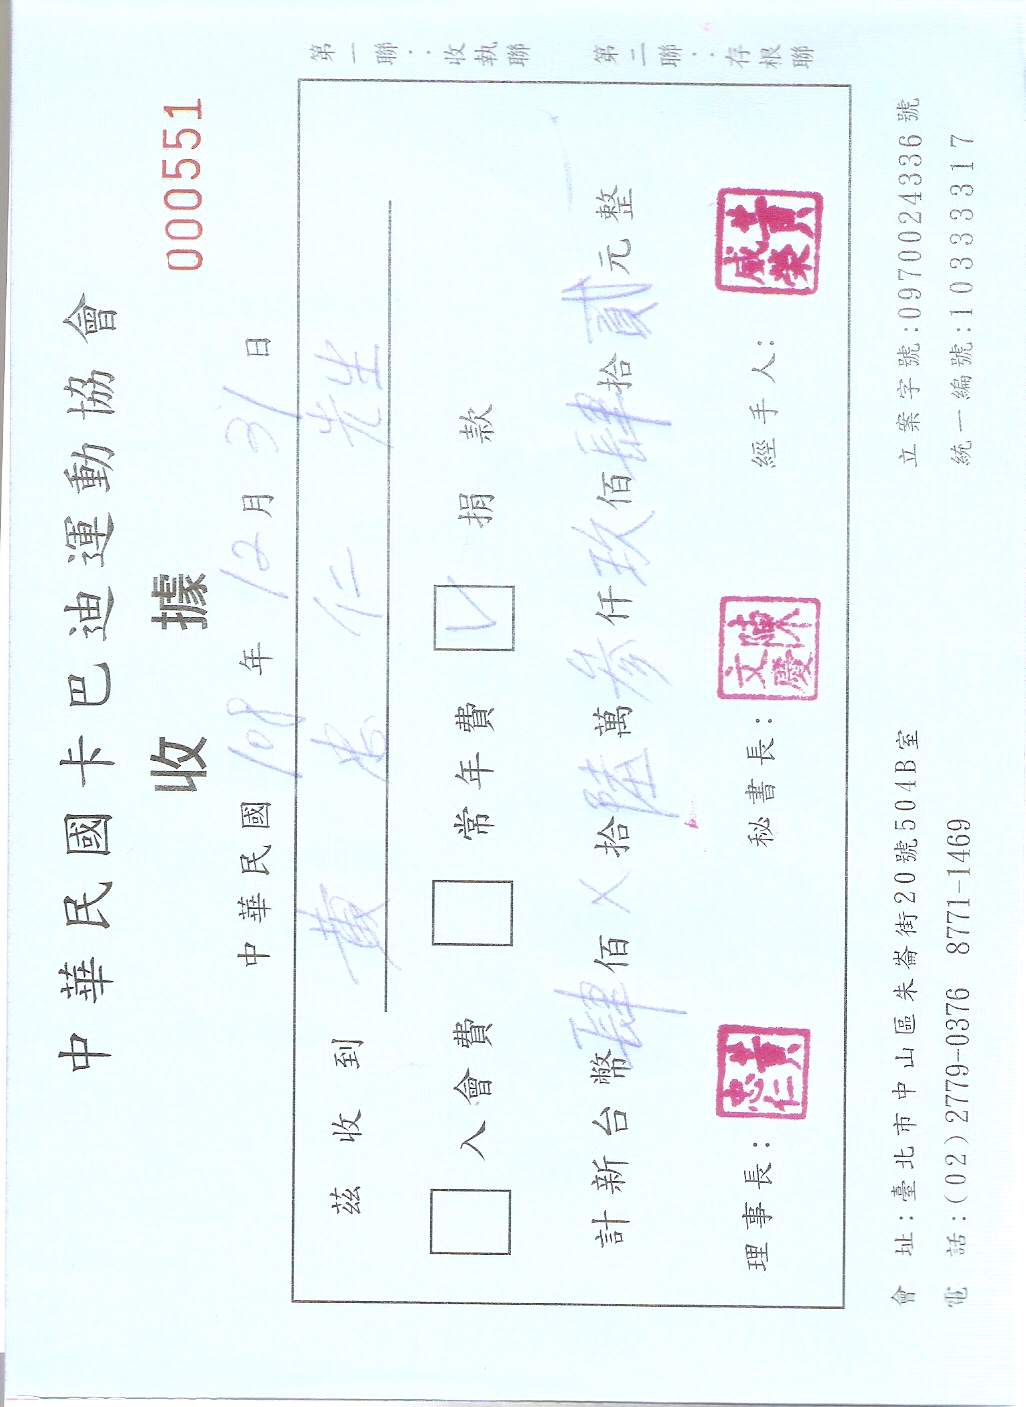 第一聯：收執聯　第二聯：存根聯
中華民國卡巴迪運動協會
收據
000551
中華民國108年12月31日
茲收到 黃忠仁 先生
□入會費 □常年費 ☑捐款
計新台幣肆佰X拾陸萬參仟玖佰肆拾貳元整
理事長： 黃忠仁 秘書長： 陳慶文 經手人： 黃威榮
會 址：臺北市中山區朱崙街20號504B室 立案字號：0970024336號
電 話：(02)2779-0376 8771-1469 統一編號：10333317